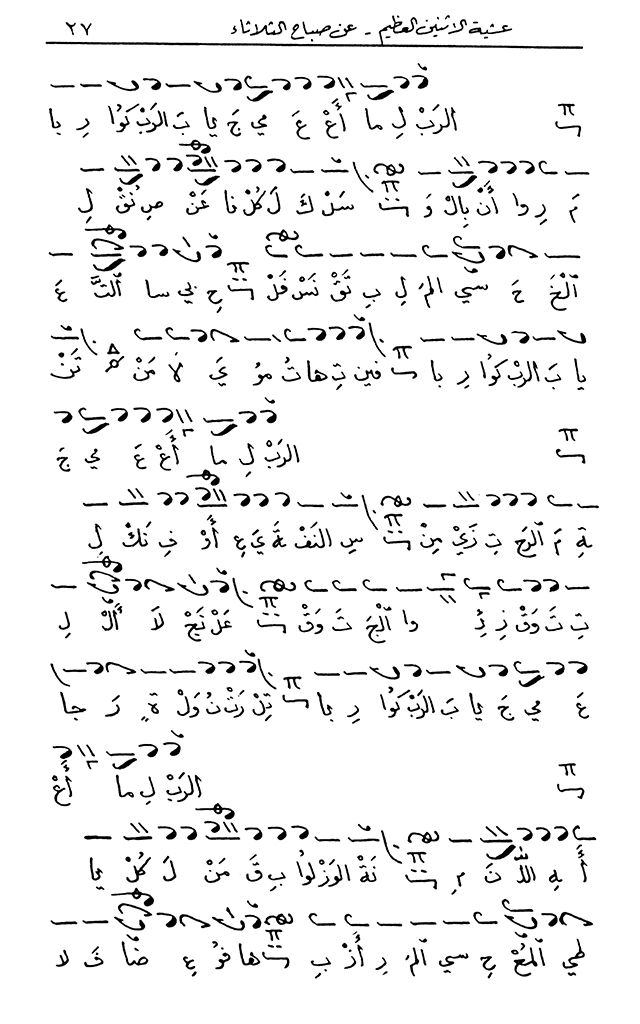 عشية الاثنين العظيم ـ عن صباح الثلاثاء ٢٧
الرَبْ لِ ما أَعْ عَ مي جَ يا بَ الرَبْ كوُا رِ با
مَ رِ وا أَنْ بِالْ وَ سَلْ كَ لَ كُلْ نا عَنْ صِ نُقْ لِ
اَلْخَ خَ سْي المَ لِ بِ تَقْ نَسْ فَلْ حِ بي سا اَلتَّ عَ
يا بَ الرَبْ كوُا رِ با فين تِ هاتُ موُ يَ لا مَنْ تَنْ
الرَبْ لِ ما أَعْ عَ مي جَ
ةِ مَ اَلرَحْ تِ زَيْ مِنْ سِ النَفْ ةَ يَ عِ أَوْ فِ نَكْ لِ
تِ تَ وَقْ زِ وا اَلْحَ تَ وَقْ عَلْ نَجْ لَا أَلْ لِ
عَ مي جَ يا بَ الرَبْ كوُا رِ با تِلْ رَتْ نُ وَلْ ةٍ رَ حا
الرَبْ لِ ما أَعْ
أَ هِ اللّٰ نَ مِ نَةْ الوَزْ لوُا بِ قَ مَنْ لَ كُلْ يا
طي اَلْمُعْ حِ سي اَلمَ رِ أَزْ بِ ها فوُ عِ ضا فَ لا